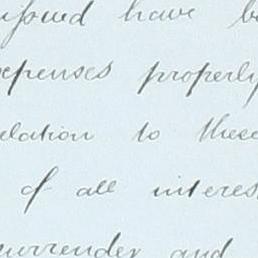 have
expenses properly
relation to these
of all interest
surrender and